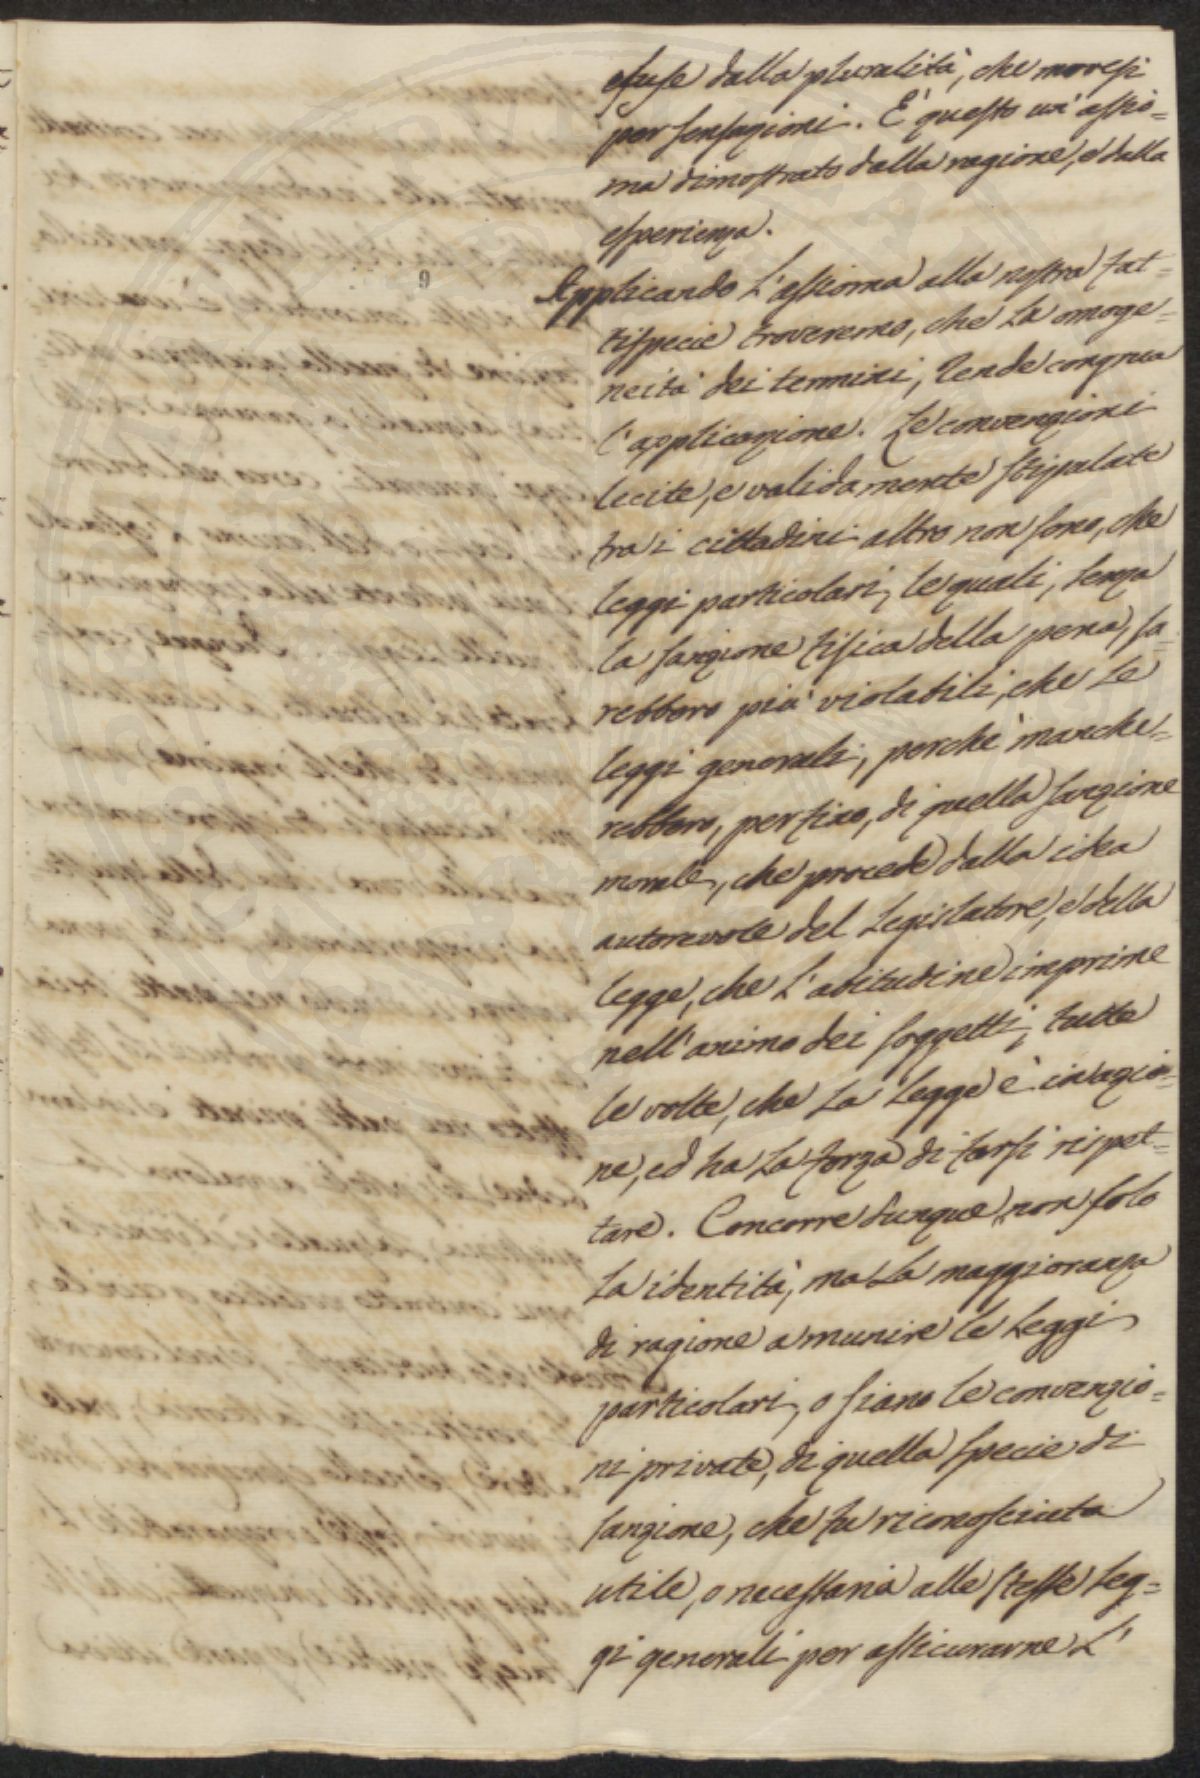 esuse dalla pluralità, che movesi
per sensazioni. E' questo un' assio=
ma dimostrato dalla ragione, e dalla
esperienza.
9
Applicando l'assioma alla nostra fat=
tispecie troveremo, che la omoge=
neità dei termini, rende congrua
l'applicazione. Le convenzioni
lecite, e validamente stipulate
tra i cittadini altro non sono, che
leggi particolari, le quali, senza
la sanzione fisica della pena, sa=
rebbero più violabili, che le
leggi generali, perchè manche=
rebbero, perfino, di quella sanzione
morale, che procede dalla idea
autorevole del Legislatore, e della
legge, che l'abitudine imprime
nell'animo dei soggetti, tutte
le volte, che la Legge è in azio=
ne, ed ha la forza di farsi rispet=
tare. Concorre dunque, non solo
la identità, ma la maggioranza
di ragione a munire le Leggi
particolari, o siano le convenzio=
ni private, di quella specie di
sanzione, che fu riconosciuta
utile, o necessaria alle stesse Leg=
gi generali per assicurarne l'